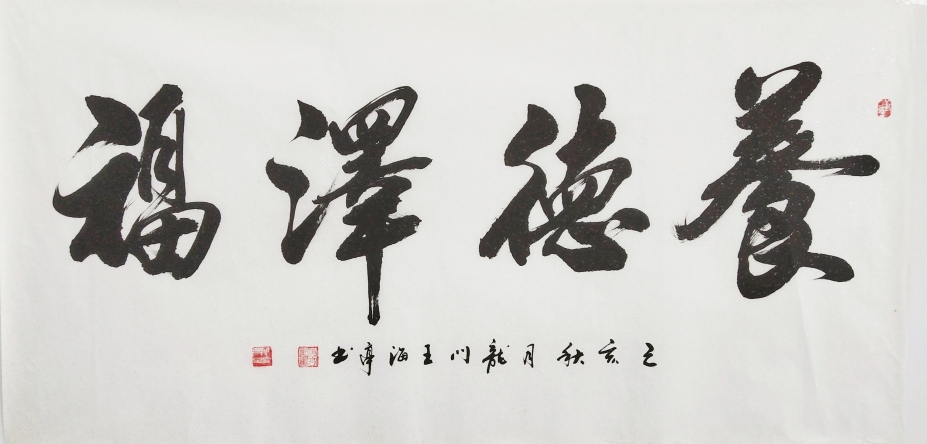 養德澤福
己亥秋月龍川王海亭书